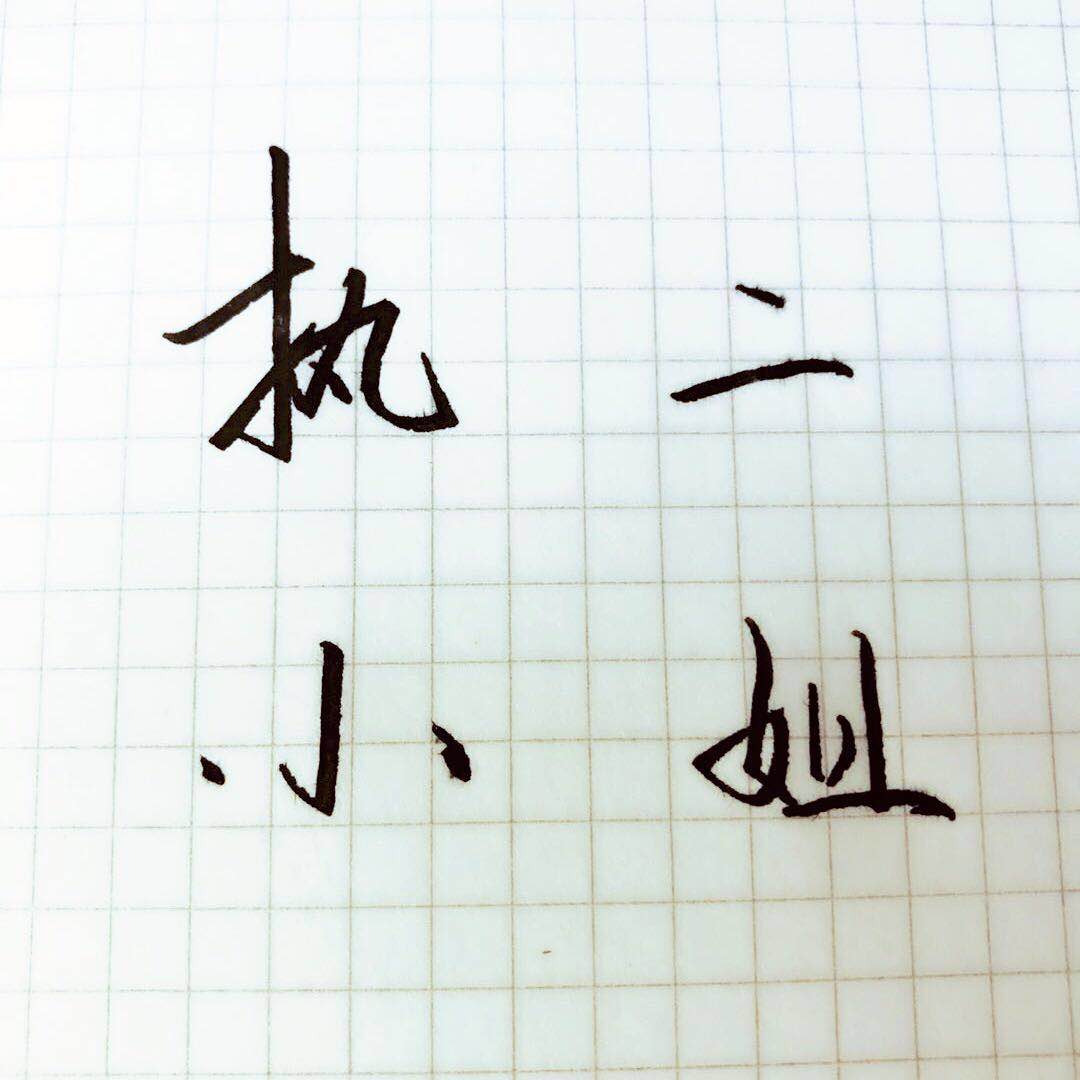 执二
小姐